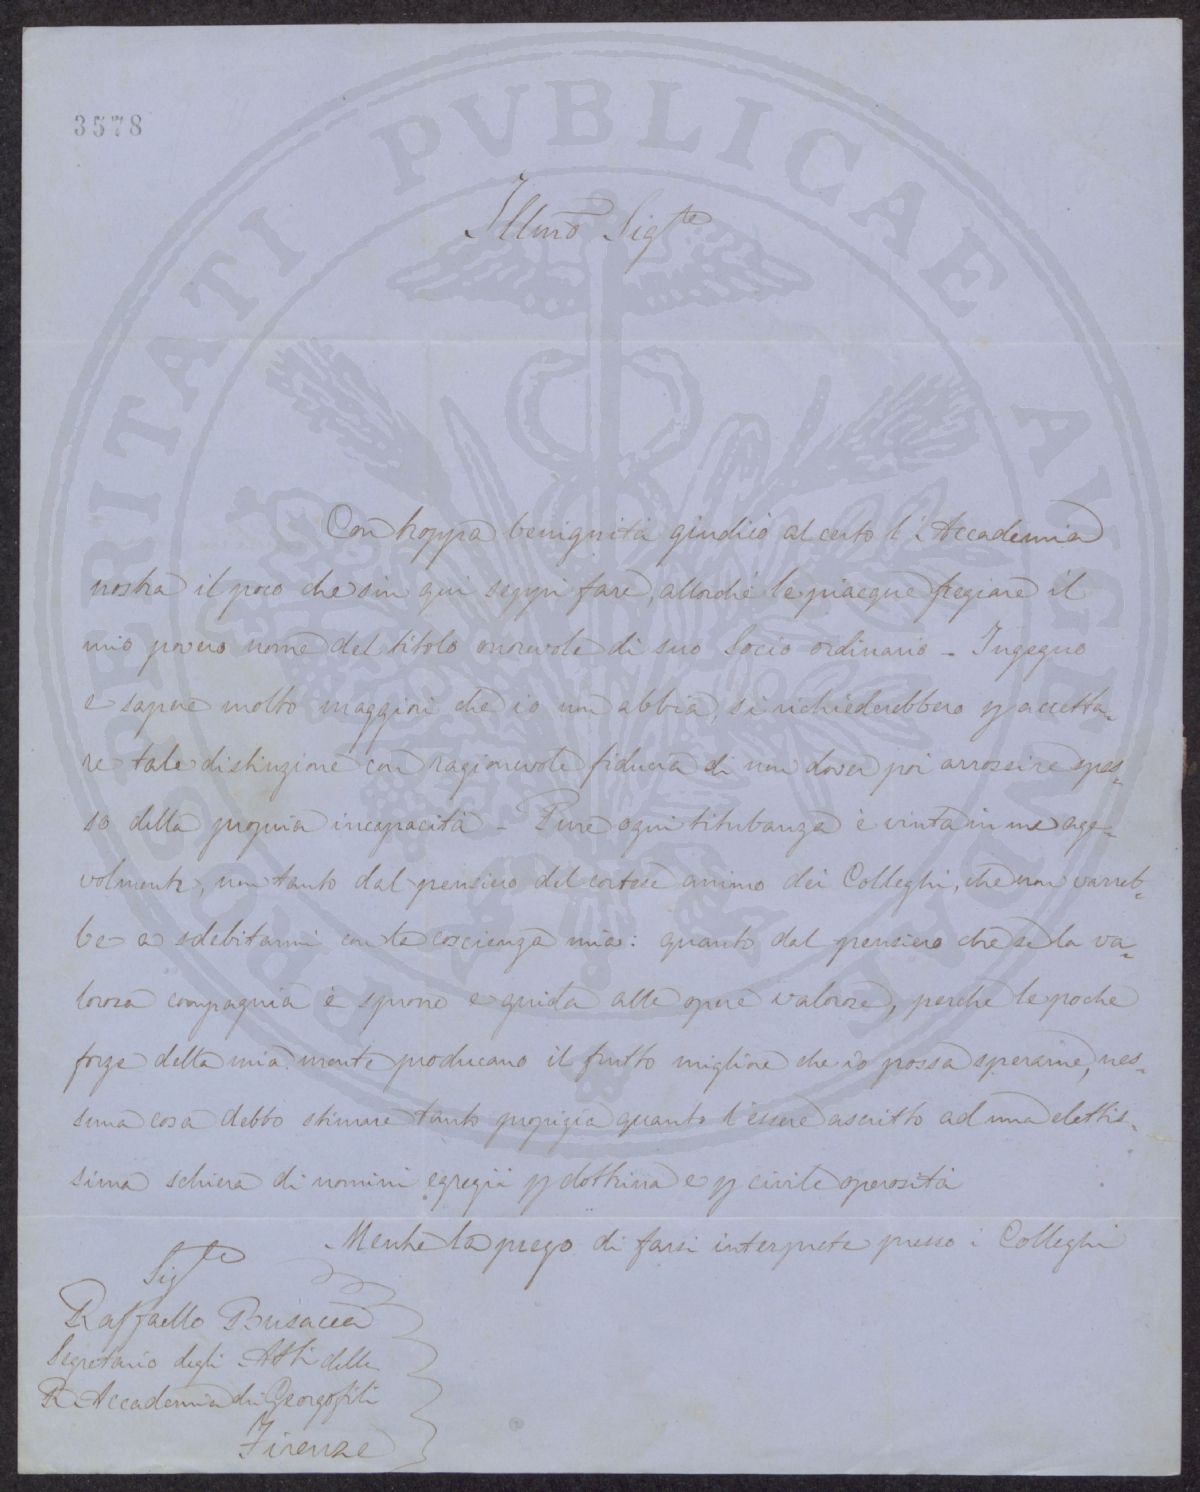 3578
PROSPERITATI PVBLICAE AVGENDAE
Illmo Sigre
Con troppa benignità giudicò al certo l'Accademia
nostra il poco che sin qui seppi fare, allorchè le piacque fregiare il
mio povero nome del titolo onorevole di suo Socio ordinario - Ingegno
e sapere molto maggiori che io non abbia, si richiederebbero p accetta-
re tale distinzione con ragionevole fiducia di non dover poi arrossire spes-
so della propria incapacità - Pure ogni titubanza è vinta in me age-
volmente, non tanto dal pensiero del cortese animo dei Colleghi, che non varreb-
be a sdebitarmi con la coscienza mia: quanto dal pensiero che se la va-
lorosa compagnia è sprone e guida alle opere valorose, perchè le poche
forze della mia mente producano il frutto migliore che io possa sperarne, nes-
suna cosa debbo stimare tanto propizia quanto l'essere ascritto ad una elettis-
sima schiera di uomini egregii p dottrina e p civile operosità
Mentre la prego di farsi interprete presso i Colleghi
Sigre
Raffaello Busacca
Segretario degli Atti della
R. Accademia dei Georgofili
Firenze